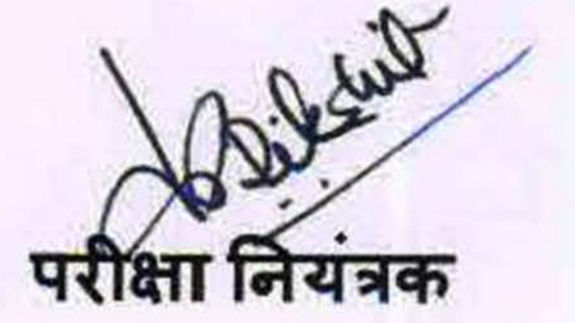 Dikshit
परीक्षा नियंत्रक